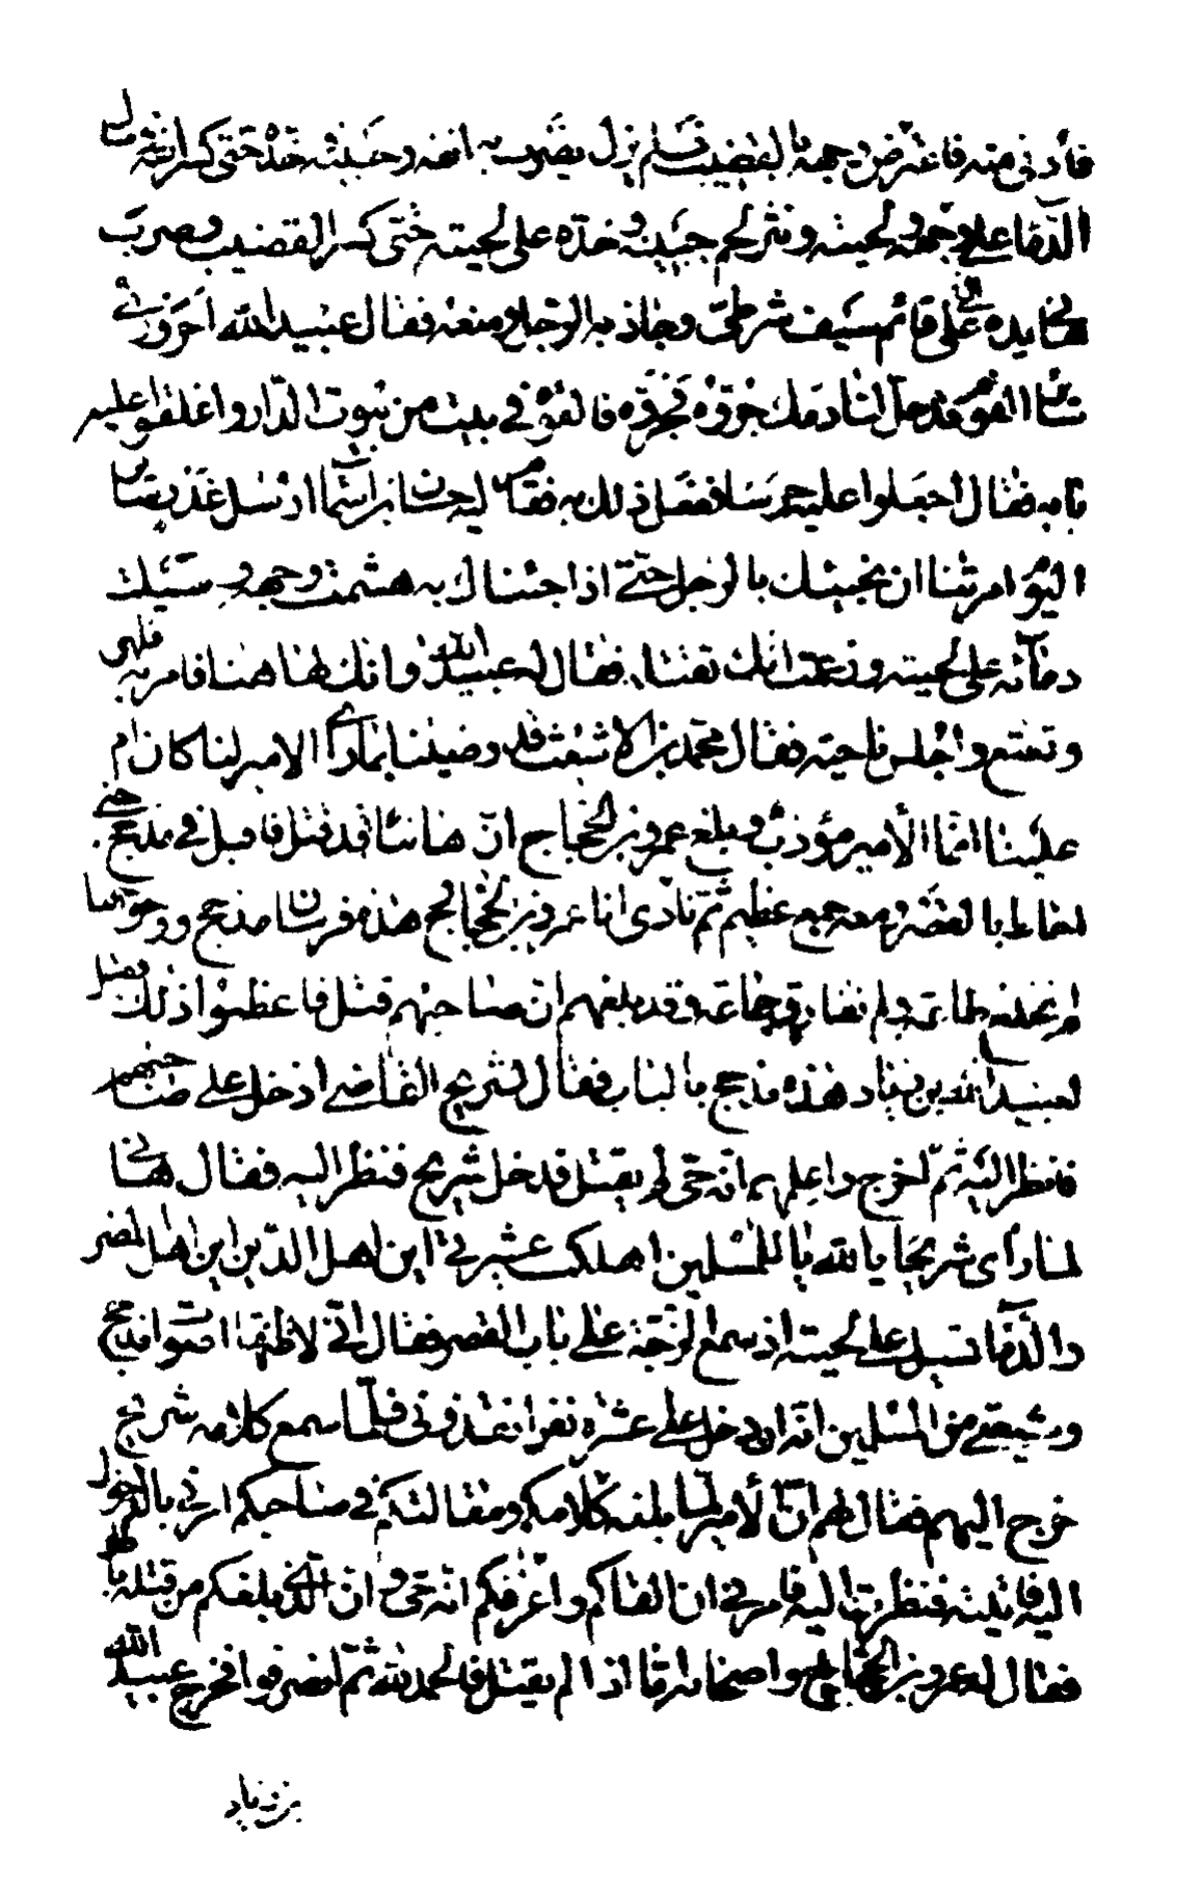 فأدني منه فاعترض وجهه بالقضيب فلم يزل يضرب به انفه وجبينه وخده حتى كسر انفه وسال
الدماء على وجهه ولحيته ونثر لحم جبينه وخده على لحيته حتى كسر القضيب وضرب
هاني يده على قائم سيف شرطي وجاذبه الرجل ومنعه فقال عبيد الله أحروري
سائر اليوم قد حل لنا دمك جروه فجروه فالقوه في بيت من بيوت الدار واغلقوا عليه
بابه فقال اجعلوا عليه حرسا ففعل ذلك به فقام اليه حسان بن اسماء ارسل غدر
اليوم امرتنا ان نجيئك بالرجل حتى اذا جئناك به هشمت وجهه وسيلت
دماءه على لحيته وزعمت انك تقتله فقال له عبيد الله وانك لها هنا فامر به فلهز
وتعتع واجلس ناحيته فقال محمد بن الاشعث قد رضينا بما رأى الامير لنا كان ام
علينا انما الأمير مؤدب وبلغ عمرو بن الحجاج ان هانئا قد قتل فاقبل في مذحج حتى
احاط بالقصر ومعه جمع عظيم ثم نادى انا عمرو بن الحجاج هذه فرسان مذحج ووجوهها
لم نخلع طاعة ولم نفارق جماعة وقد بلغهم ان صاحبهم قتل فاعظموا ذلك فقيل
لعبيد الله بن زياد هذه مذحج بالباب فقال لشريح القاضي ادخل على صاحبهم
فانظر اليه ثم اخرج واعلمهم انه حي لم يقتل فدخل شريح فنظر اليه فقال هاني
لما رأى شريحا يا لله يا للمسلمين اهلكت عشيرتي اين اهل الدين اين اهل المصر
والدماء تسيل على لحيته اذ سمع الرجة على باب القصر فقال اني لاظنها اصوات مذحج
وشيعتي من المسلمين انه ان دخل علي عشرة نفر انقذوني فلما سمع كلامه شريح
خرج اليهم فقال لهم ان الأمير لما بلغه كلامكم ومقالتكم في صاحبكم امرني بالدخول
اليه فاتيته فنظرت اليه فامرني ان القاكم واعرفكم انه حي وان الذي بلغكم من قتله باطل
فقال له عمرو بن الحجاج واصحابه اما اذا لم يقتل فالحمد لله ثم انصرفوا فخرج عبيد الله
بن زياد